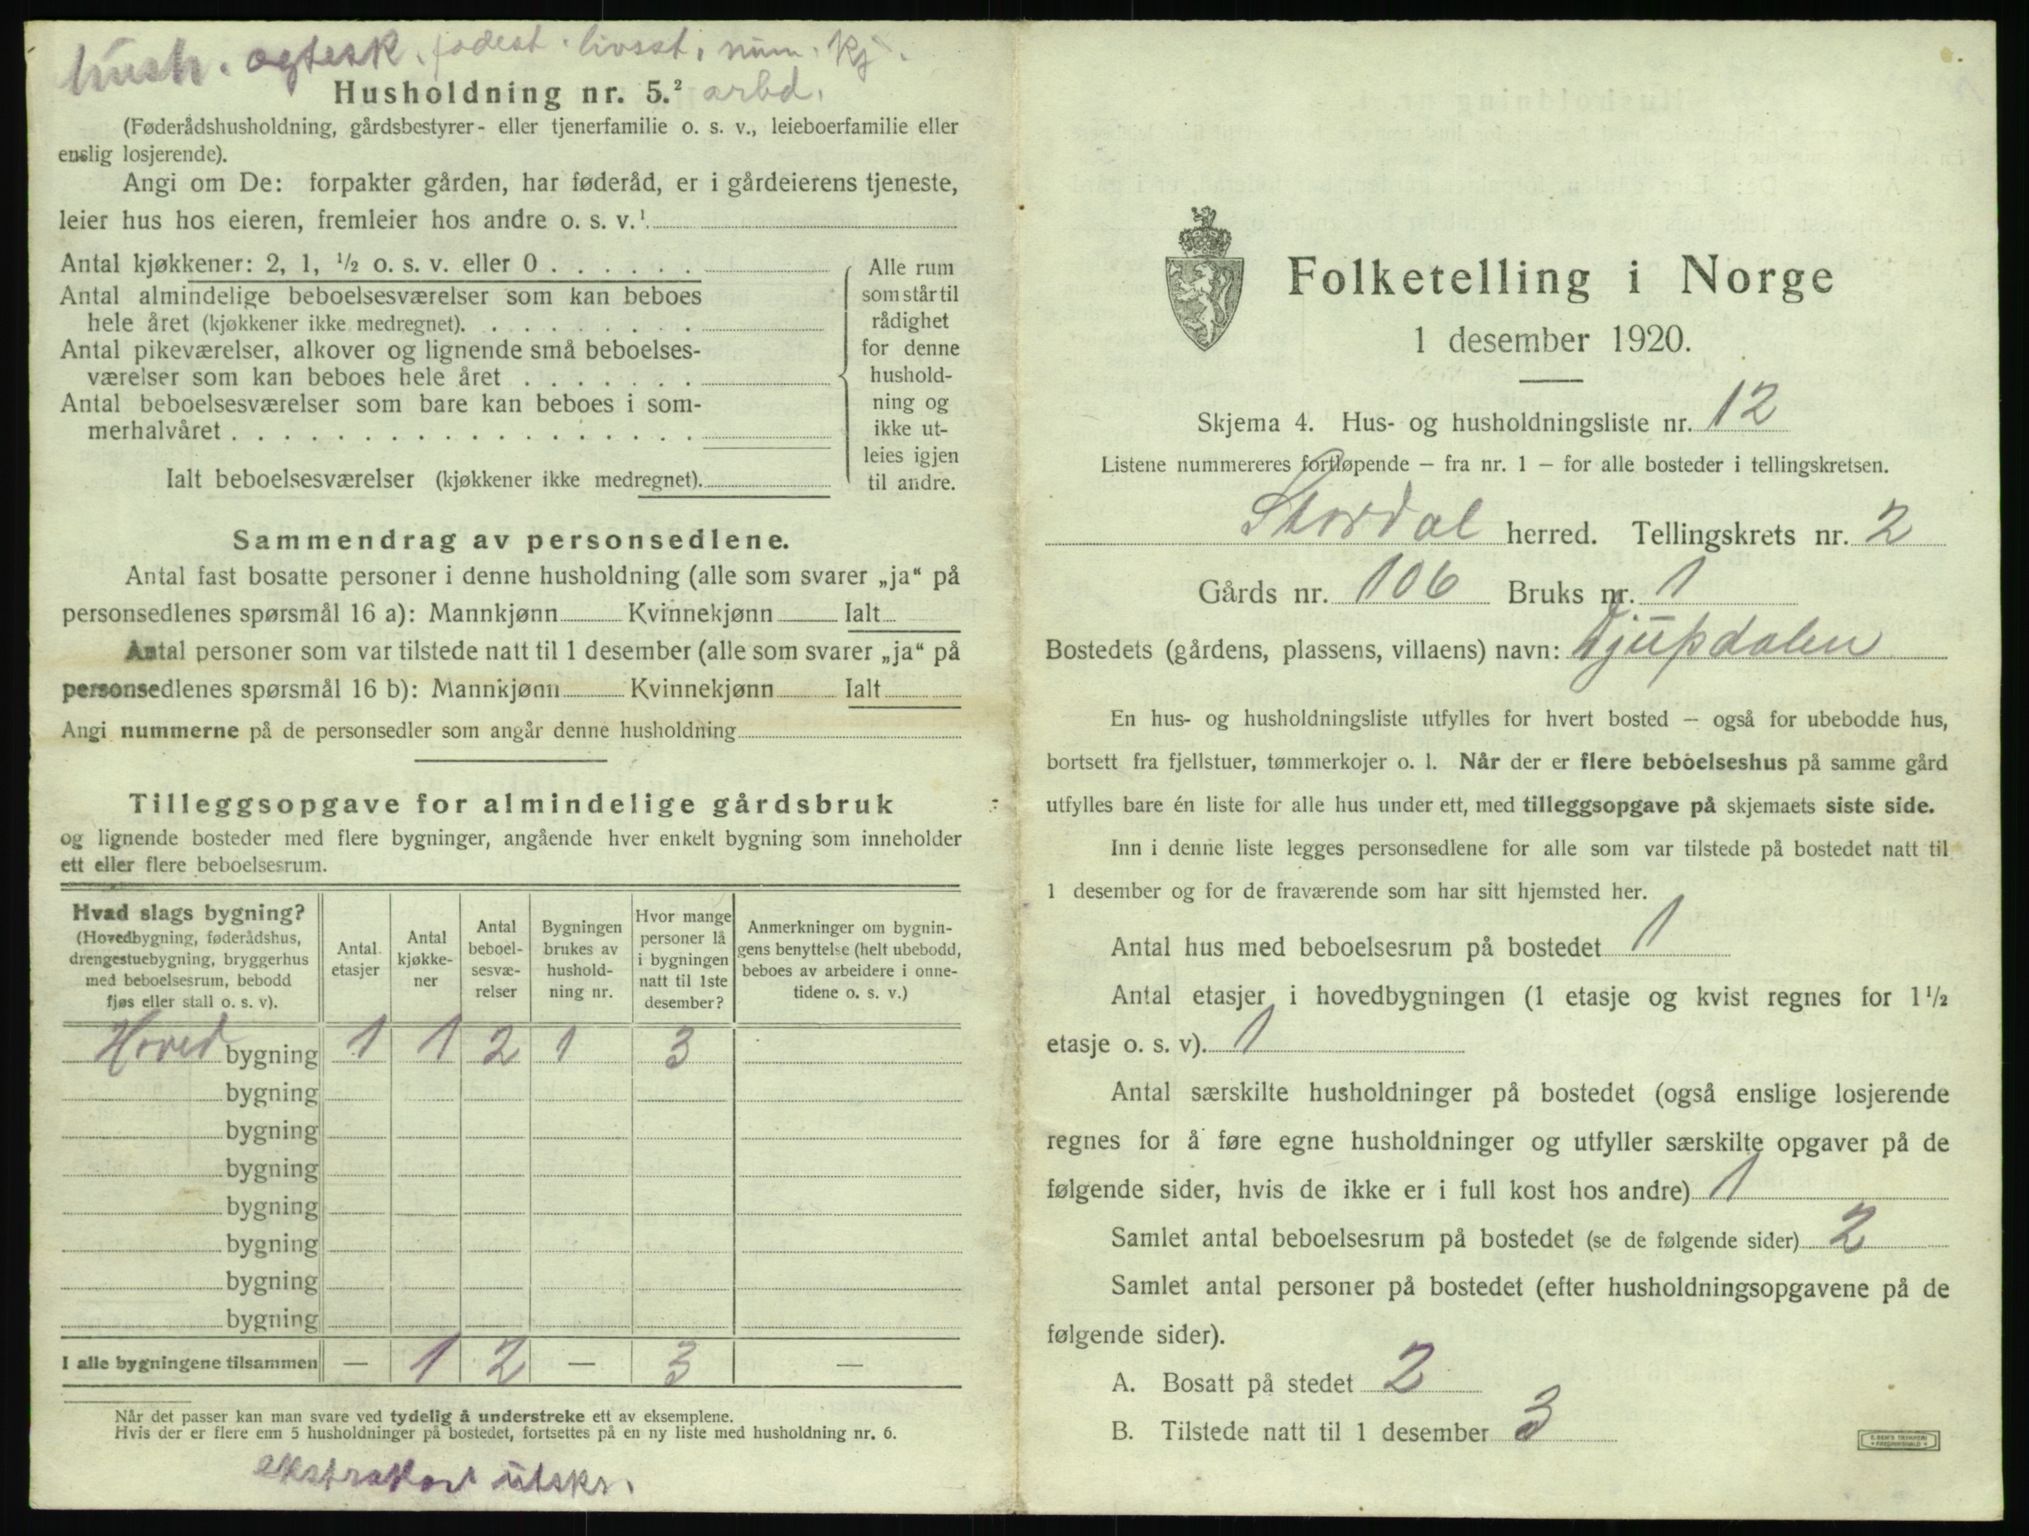 hush. ogtesk. fødest. livsst. num. kj.
Husholdning nr. 5.² arbd.
(Føderådshusholdning, gårdsbestyrer- eller tjenerfamilie o. s. v., leieboerfamilie eller
enslig losjerende).
Angi om De: forpakter gården, har føderåd, er i gårdeierens tjeneste,
leier hus hos eieren, fremleier hos andre o. s. v.¹
Antal kjøkkener: 2, 1, ½ o. s. v. eller 0 . . . . . .
Antal almindelige beboelsesværelser som kan beboes
hele året (kjøkkener ikke medregnet). . . . . . . . .
Antal pikeværelser, alkover og lignende små beboelses-
værelser som kan beboes hele året . . . . . . .
Antal beboelsesværelser som bare kan beboes i som-
merhalvåret . . . . . . . . . . . . . . . . . .
Ialt beboelsesværelser (kjøkkener ikke medregnet).
Alle rum
som står til
rådighet
for denne
hushold-
ning og
ikke ut-
leies igjen
til andre.
Sammendrag av personsedlene.
Antal fast bosatte personer i denne husholdning (alle som svarer „ja“ på
personsedlenes spørsmål 16 a): Mannkjønn Kvinnekjønn Ialt
Antal personer som var tilstede natt til 1 desember (alle som svarer „ja“ på
personsedlenes spørsmål 16 b): Mannkjønn Kvinnekjønn Ialt
Angi nummerne på de personsedler som angår denne husholdning
Tilleggsopgave for almindelige gårdsbruk
og lignende bosteder med flere bygninger, angående hver enkelt bygning som inneholder
ett eller flere beboelsesrum.
Hvad slags bygning?
(Hovedbygning, føderådshus,
drengestuebygning, bryggerhus
med beboelsesrum, bebodd
fjøs eller stall o. s. v).
Antal
etasjer
Antal
kjøkke-
ner
Antal
beboel-
sesvæ-
relser
Bygningen
brukes av
hushold-
ning nr.
Hvor mange
personer lå
i bygningen
natt til 1ste
desember?
Anmerkninger om bygnin-
gens benyttelse (helt ubebodd,
beboes av arbeidere i onne-
tidene o. s. v.)
Hoved bygning 1 1 2 1 3
bygning
bygning
bygning
bygning
bygning
bygning
bygning
I alle bygningene tilsammen — 1 2 — 3 —
Når det passer kan man svare ved tydelig å understreke ett av eksemplene.
Hvis der er flere enn 5 husholdninger på bostedet, fortsettes på en ny liste med husholdning nr. 6.
utskr.
Folketelling i Norge
1 desember 1920.
Skjema 4. Hus- og husholdningsliste nr. 12
Listene nummereres fortløpende – fra nr. 1 – for alle bosteder i tellingskretsen.
Stordal herred. Tellingskrets nr. 2
Gårds nr. 106 Bruks nr. 1
Bostedets (gårdens, plassens, villaens) navn: Djupdalen
En hus- og husholdningsliste utfylles for hvert bosted – også for ubebodde hus,
bortsett fra fjellstuer, tømmerkojer o. l. Når der er flere beboelseshus på samme gård
utfylles bare én liste for alle hus under ett, med tilleggsopgave på skjemaets siste side.
Inn i denne liste legges personsedlene for alle som var tilstede på bostedet natt til
1 desember og for de fraværende som har sitt hjemsted her.
Antal hus med beboelsesrum på bostedet 1
Antal etasjer i hovedbygningen (1 etasje og kvist regnes for 1½
etasje o. s. v). 1
Antal særskilte husholdninger på bostedet (også enslige losjerende
regnes for å føre egne husholdninger og utfyller særskilte opgaver på de
følgende sider, hvis de ikke er i full kost hos andre) 1
Samlet antal beboelsesrum på bostedet (se de følgende sider) 2
Samlet antal personer på bostedet (efter husholdningsopgavene på de
følgende sider).
A. Bosatt på stedet 2
B. Tilstede natt til 1 desember 3